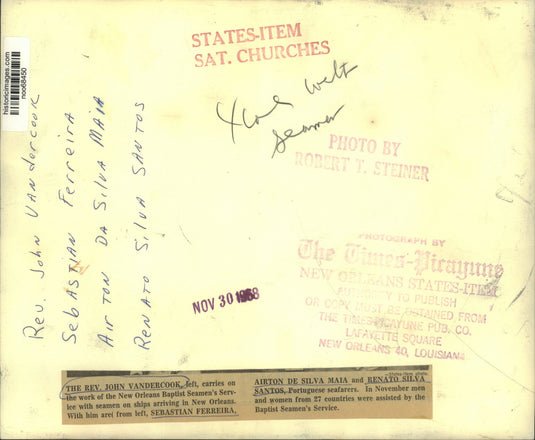 historicimages.com
noo68450
STATES-ITEM
SAT. CHURCHES
Seamen
PHOTO BY
ROBERT T. STEINER
Rev. John VANdercook
SebASTIAN Ferreira
AIrTON DA SILVA MAIA
RENATO SILVA SANTOS
PHOTOGRAPH BY
The Times-Picayune
NEW ORLEANS STATES-ITEM
AUTHORITY TO PUBLISH
OR COPY MUST BE OBTAINED FROM
THE TIMES-PICAYUNE PUB. CO.
LAFAYETTE SQUARE
NEW ORLEANS 40, LOUISIANA
NOV 30 1968
THE REV. JOHN VANDERCOOK, left, carries on
the work of the New Orleans Baptist Seamen's Serv-
ice with seamen on ships arriving in New Orleans.
With him are: from left, SEBASTIAN FERREIRA,
—States-Item photo.
AIRTON DE SILVA MAIA and RENATO SILVA
SANTOS, Portuguese seafarers. In November men
and women from 27 countries were assisted by the
Baptist Seamen's Service.